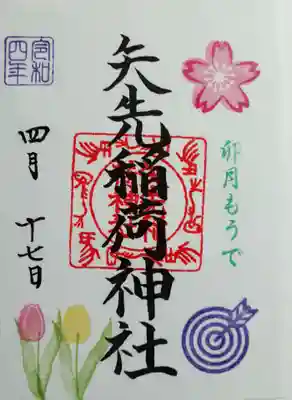 卯月もうで
矢先稲荷神社
令和
四年
四月 十七日